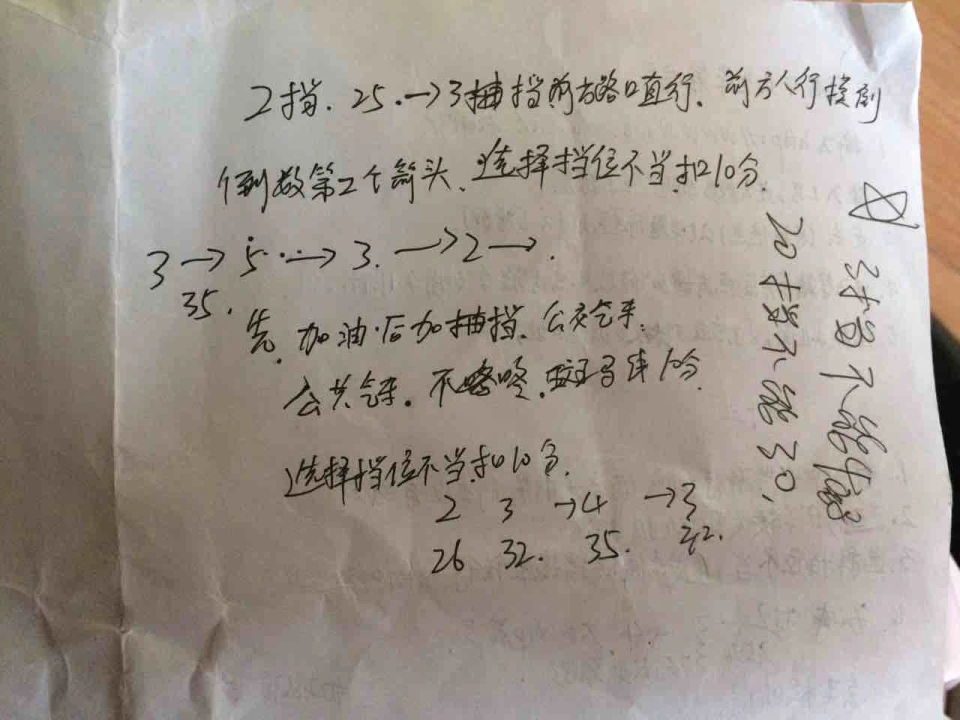 2挡. 25.→3抽挡前方路口直行、前方人行横
倒数第2个箭头、选择挡位不当扣10分.
3→5.→3.→2→.
35.
先.加油.后加抽挡.公交车.
公共车.不 .斑马线10分.
选择挡位不当扣10分.
2 3 →4 →3
26 32. 35. 32.
☆
3挡不能
20 2挡不能30.